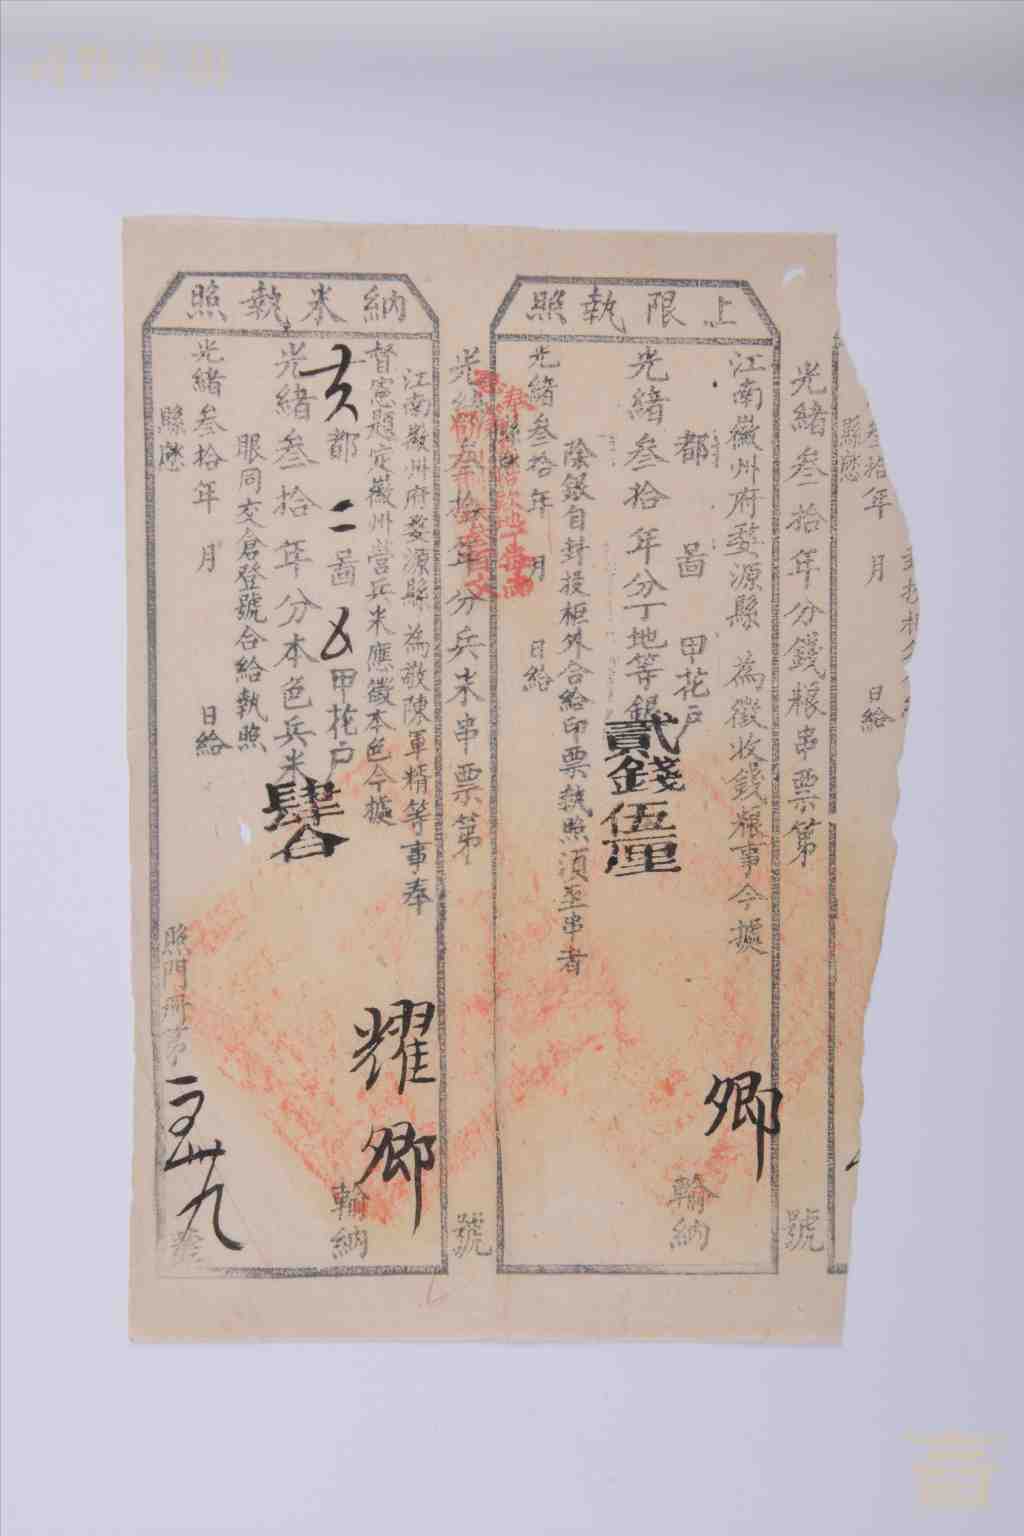 上限執照
光緒叁拾年分錢粮串票第 號
江南徽州府婺源縣 為徵收錢粮事今據
都 啚 甲花戶 卿 輸納
光緒叁拾年分丁地等銀貳錢伍厘
除銀自封投柜外合給印票執照須至串者
光緒叁拾年 月 日給
納米執照
光緒叁拾年分兵米串票第 號
江南徽州府婺源縣 為敬陳軍精等事奉
督憲題定徽州營兵米應徵本色今據
都二啚 甲花戶 耀卿 輸納
光緒叁拾年分本色兵米肆合
眼同交倉登號合給執照
光緒叁拾年 月 日給
縣應
照門冊第 號
叁拾年 月 日給
縣應